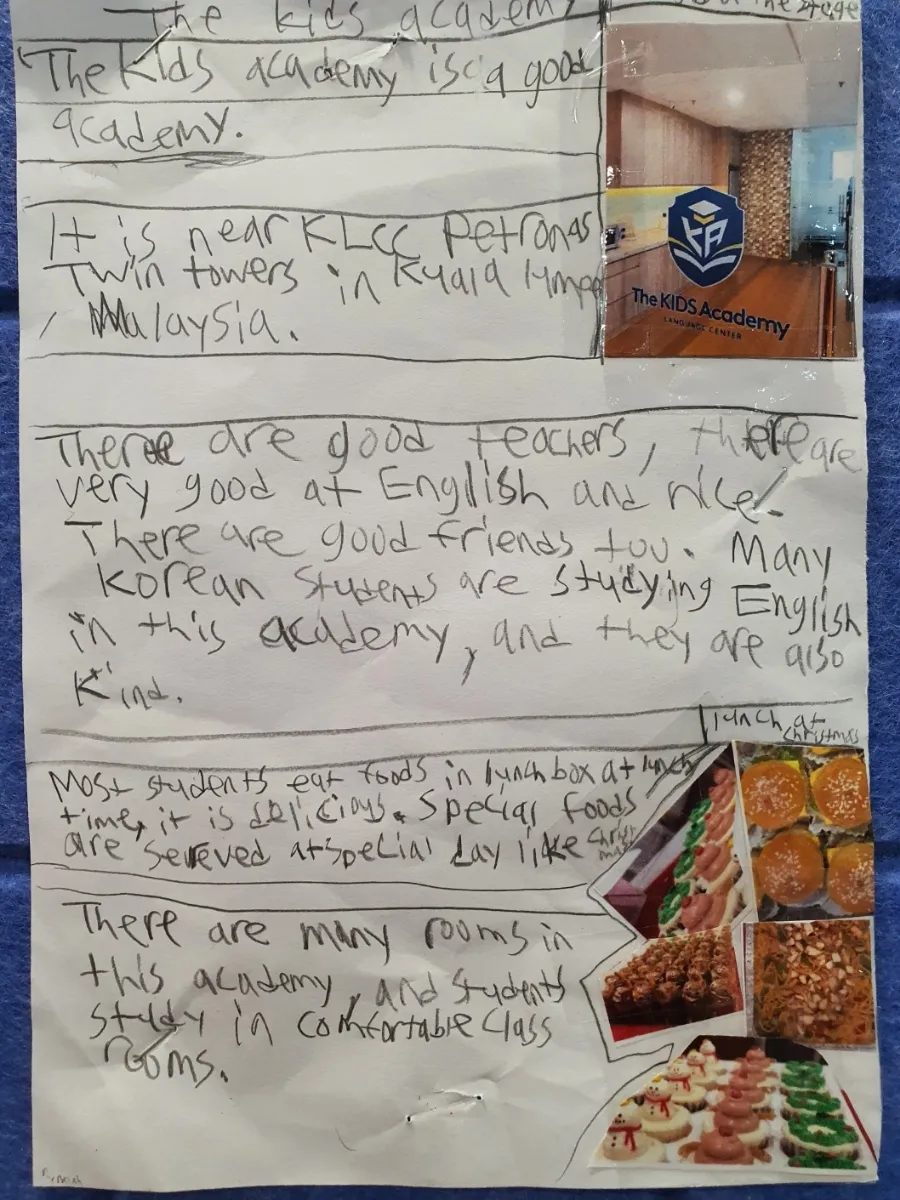 The kids academy
of the
The Kids academy is a good
academy.
It is near KLCC Petronas
Twin towers in Kuala lumpo
, Malaysia.
KA
The KIDS Academy
LANGUAGE CENTER
There are good teachers, there are
very good at English and nice.
There are good friends too. Many
Korean students are studying English
in this academy, and they are also
Kind.
lunch at
christmas
Most students eat foods in lunch box at lunch
time, it is delicious. Special foods
are sereved at special day like Christ
mas
There are many rooms in
this academy, and students
study in comfortable class
rooms.